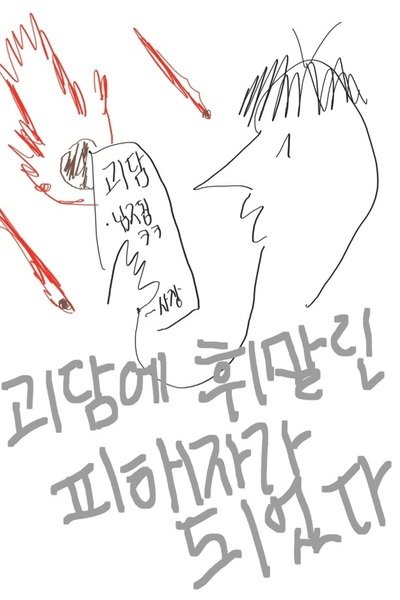 괴담
ㅋㅋ
~사장
괴담에 휘말린
피해자가
되었다